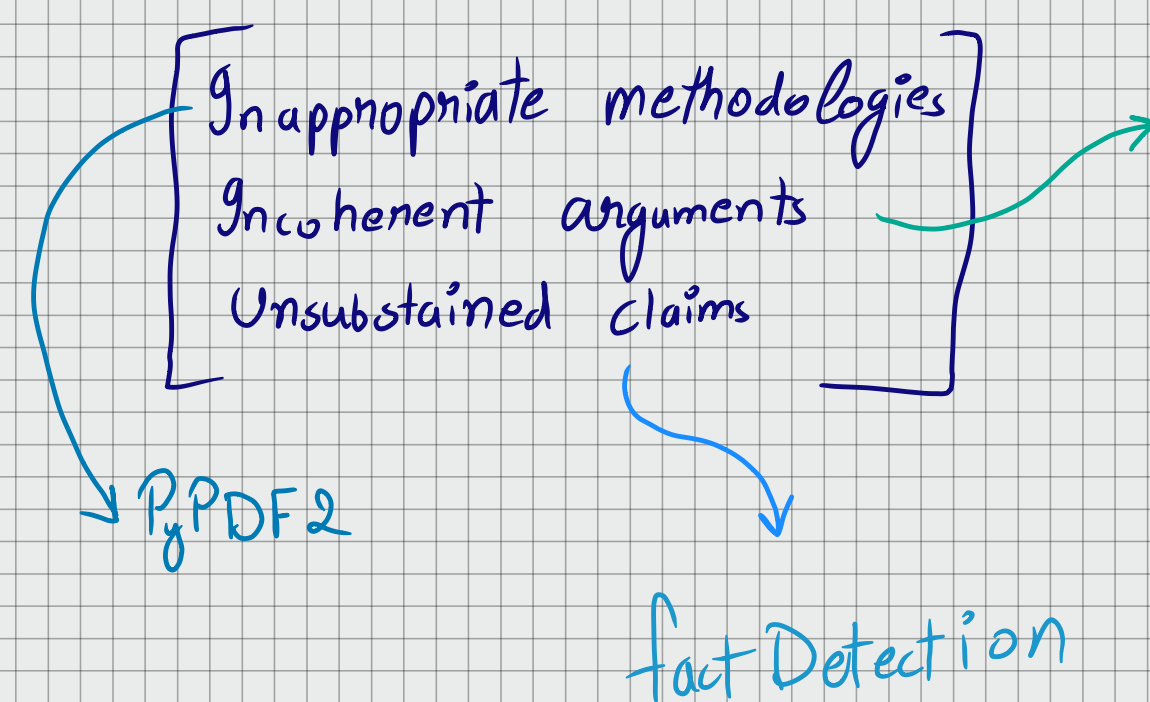 Inappropriate methodologies
Incoherent arguments
Unsubstained claims
PyPDF2
fact Detection